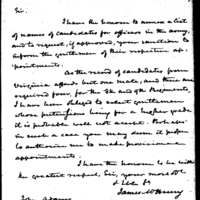 Sir.
I have the honour to annex a list
of names of Candidates for officers in the army,
and to request, if approved, your sanction to
inform the gentlemen of their respective ap-
pointments.
As the record of candidates from
Virginia affords but one mate, and there are
required four, for the and Regiments,
I have been obliged to select gentlemen
whose pretensions being for a higher grade
it is probable will not accept. Perhaps
in such a case you may deem it proper
to authorise me to make provisionary
appointments.
I have the honor to be with
the greatest respect, Sir, your most Ob
James McHenry
John Adams